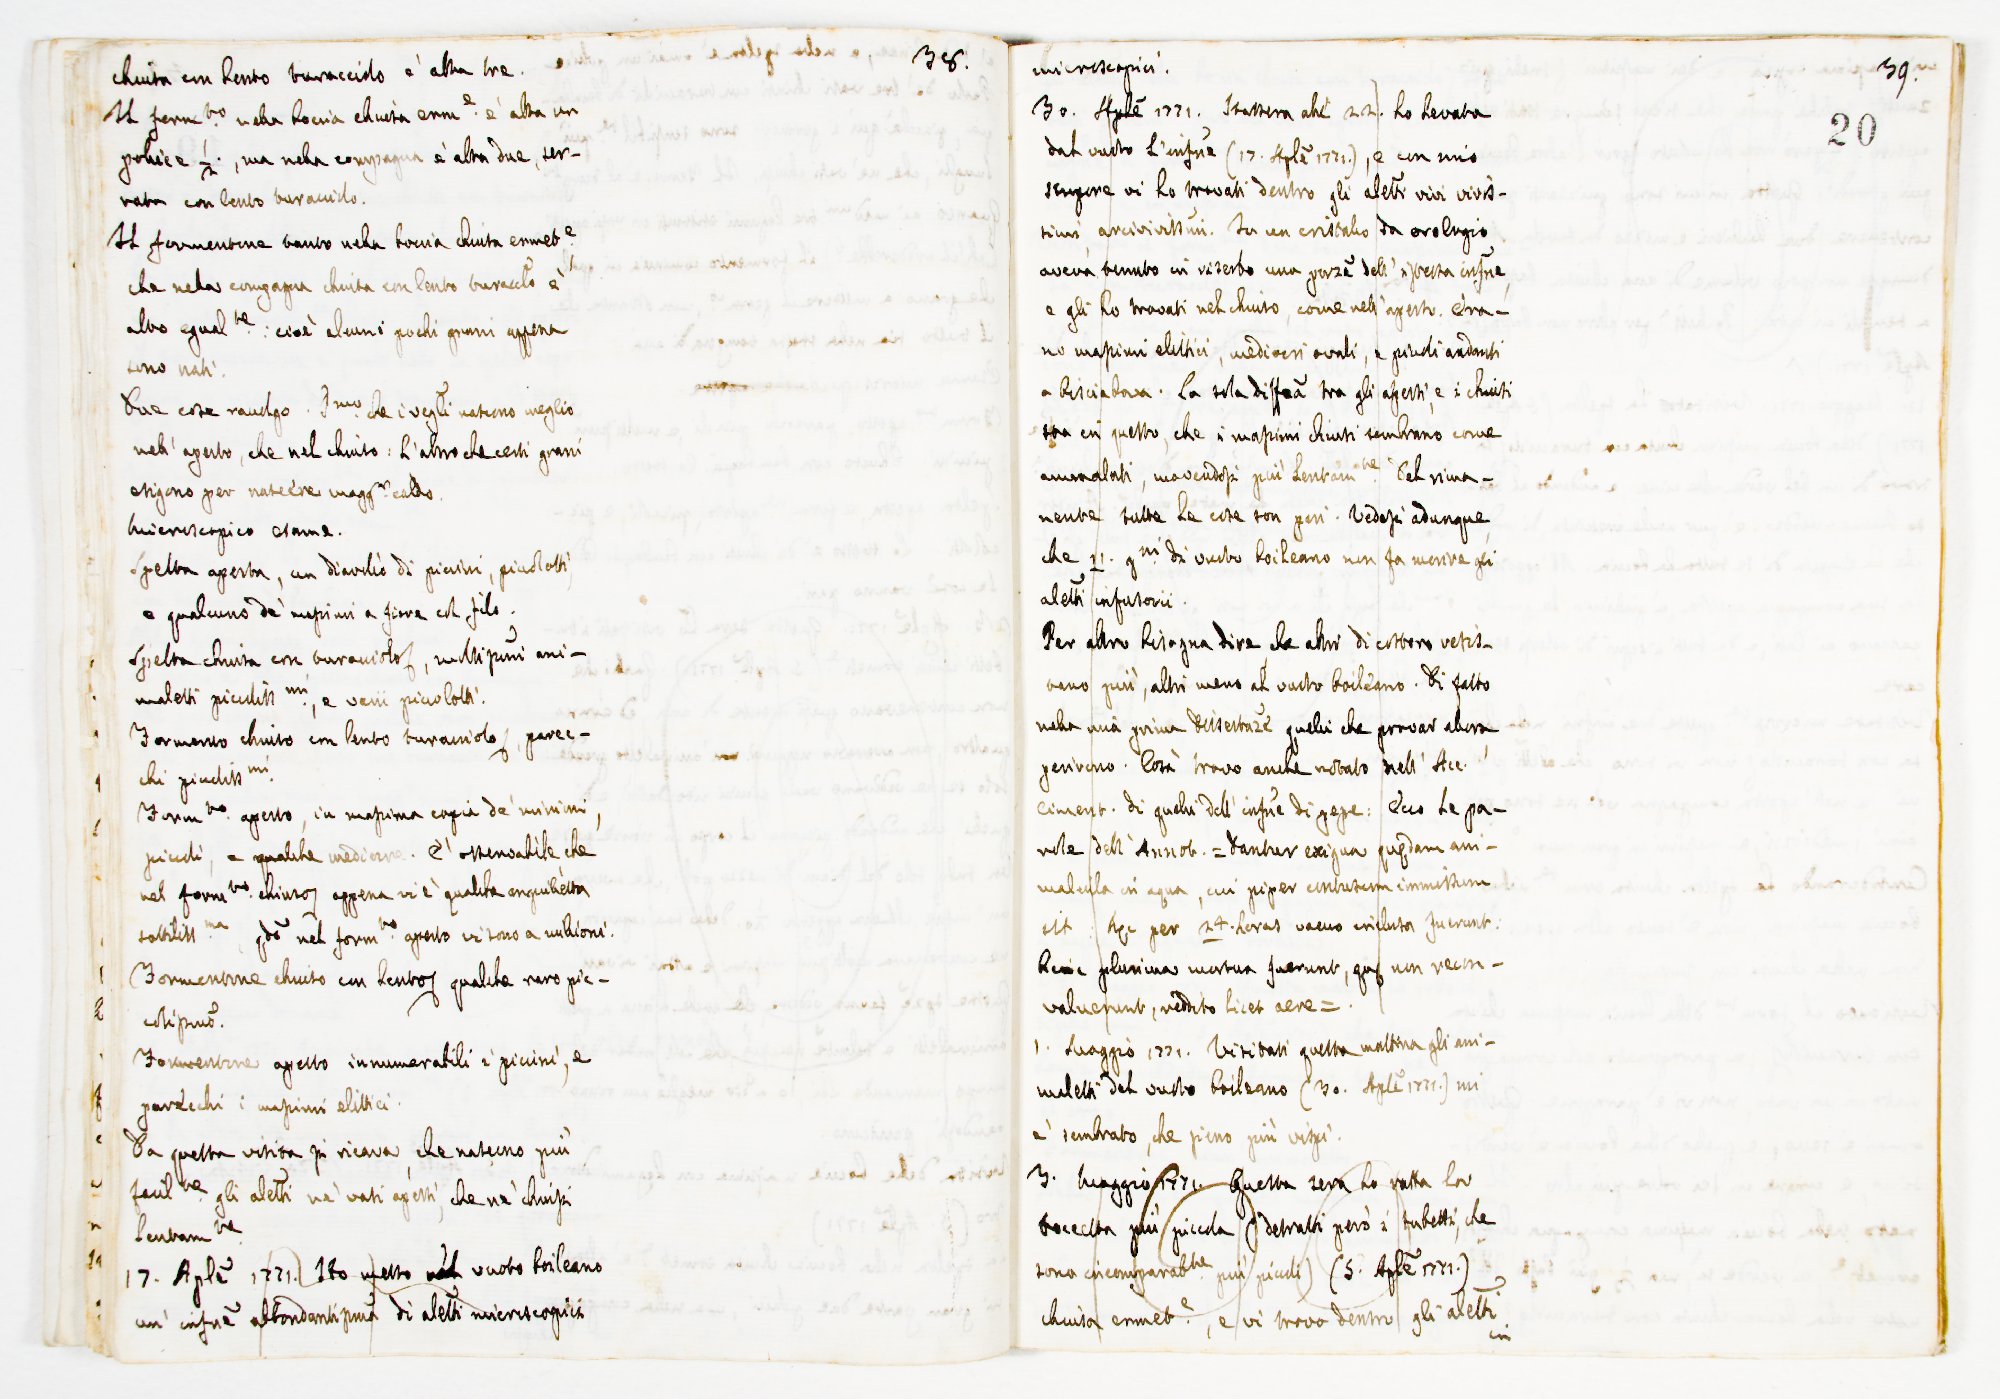 38.
chiusa con lento buraccido è alta tre.
Il form.to nella boccia chiusa erm.e è alta un
police 1/2., ma nella compagna è alta due, ser-
rata con lento buraccido.
Il formentone tanto nella boccia chiusa ermet.e
che nella compagna chiusa con lento buracclo è
alto egual.te: cioè alcuni pochi grani appena
sono nati.
Due cose raccolgo. Imo. che i vegli nascono meglio
nell' aperto, che nel chiuso: L'altro che certi grani
esigono per nascere magg.r caldo.
Microscopico esame.
Spelta aperta, un diavolìo di piccini, piccolotti,
e qualcuno de' massimi a fiore col filo.
Spelta chiusa con buracciolo, moltissimi ani-
maletti piccoliss.mi, e varii piccolotti.
Formento chiuso con lento buracciolo, parec-
chi piccoliss.mi.
Form.to aperto, in massima copia de' minimi,
piccoli, e qualche mediocre. E' osservabile che
nel form.to chiuso appena vi è qualche anguilletta
sottiliss.ma, qdo nel form.to aperto vi sono a milioni.
Formentone chiuso con lento qualche raro pic-
colissimo.
Formentone aperto innumerabili i piccini, e
parecchi i massimi elittici.
Da questa visita si ricava, che nascono più
facil.te gli aletti ne' vasi aperti, che ne' chiusi
lentam.te
17. Aple 1771. Ho messo nel vuoto boileano
un' infne abbondantissima di aletti microscopici
39.
20
microscopici.
30. Aple 1771. Stassera alle 22. ho levata
dal vuoto l'infne (17. Aple 1771.), e con mio
stupore vi ho trovati dentro gli aletti vivi vivis-
simi, arcivivissimi. In un cristallo da orologio
aveva tenuto in riserbo una porze dell' istessa infne,
e gli ho trovati nel chiuso, come nell' aperto. Era-
no massimi elittici, mediocri ovali, e piccoli andanti
a biscia bova. La sola diffza tra gli aperti, e i chiusi
sta in questo, che i massimi chiusi sembrano come
ammalati, movendosi più lentam.te. Del rima-
nente tutte le cose son pari. Vedesi adunque,
che 11. gni di vuoto boileano non fa morire gli
aletti infusorii.
Per altro bisogna dire, che altri di costoro resis-
tano più, altri meno al vuoto boileano. Di fatto
nella mia prima dissertaze quelli che provai allora
perirono. Così trovo anche notato nell' Acc.
Ciment. di quelli dell' infne di pepe: Ecco le pa-
role dell' Annot. = Dantur exigua quædam ani-
malcula in aqua, cui piper contusum immissum
sit. Hæc per 24. horas vacuo inclusa fuerunt:
hinc plurima mortua fuerunt, quæ non recon-
valuerunt, reddito licet aere =.
1. Maggio 1771. Visitati questa mattina gli ani-
maletti del vuoto boileano (30. Aple 1771.) mi
è sembrato, che sieno più vispi.
3. Maggio 1771. Questa sera ho rotta la
boccetta più piccola (detratti però i tubetti, che
sono incomparab.te più piccoli) (5. Aple 1771.)
chiusa ermet.e, e vi trovo dentro gli aletti
in